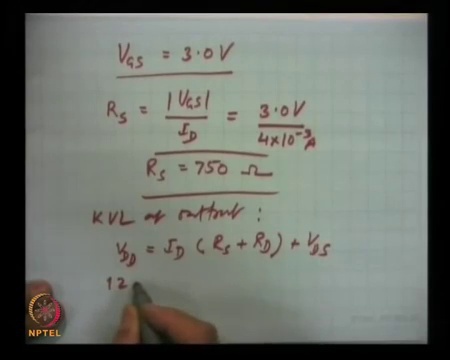 V_GS = 3.0 V
R_S = |V_GS| / I_D = 3.0 V / 4×10⁻³ A
R_S = 750 Ω
KVL at output :
V_DD = I_D ( R_S + R_D ) + V_DS
12
NPTEL